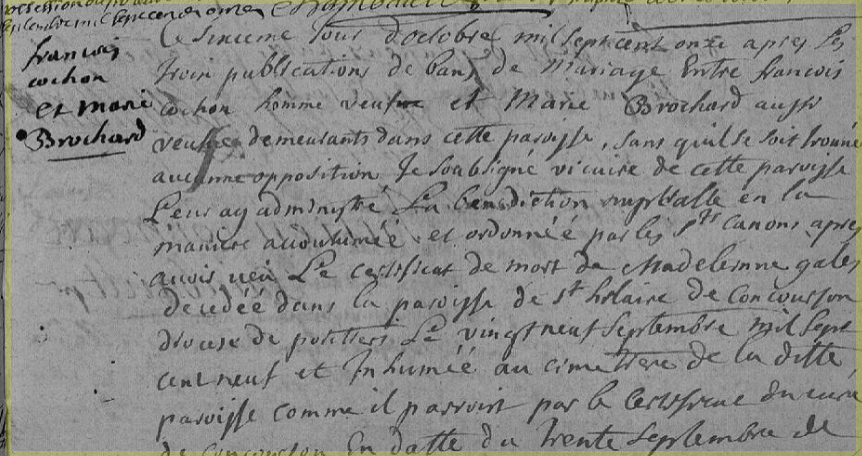 septembre mil sept cent onze
francois
cochon
et marie
Brochard
Ce sixieme Jour d'octobre mil sept cent onze apres les
trois publications de bans de Mariage Entre francois
cochon homme veufve et Marie Brochard aussi
veufve demeurants dans cette paroisse, sans quil se soit trouvé
aucunne opposition Je soubsigné vicaire de cette paroisse
Leur ay administré La benediction nuptialle en la
maniere accoutumée et ordonnée par les Sts Canons apres
avoir veu Le certificat de mort de Madelenne
decedée dans la paroisse de St hilaire de Concourson
diocese de poitiers Le vingt neuf Septembre mil Sept
cent neuf et Inhumée au cimettere de la ditte
paroisse comme il parroist par le Certificat du curé
de Concourson En datte du trente Septembre de